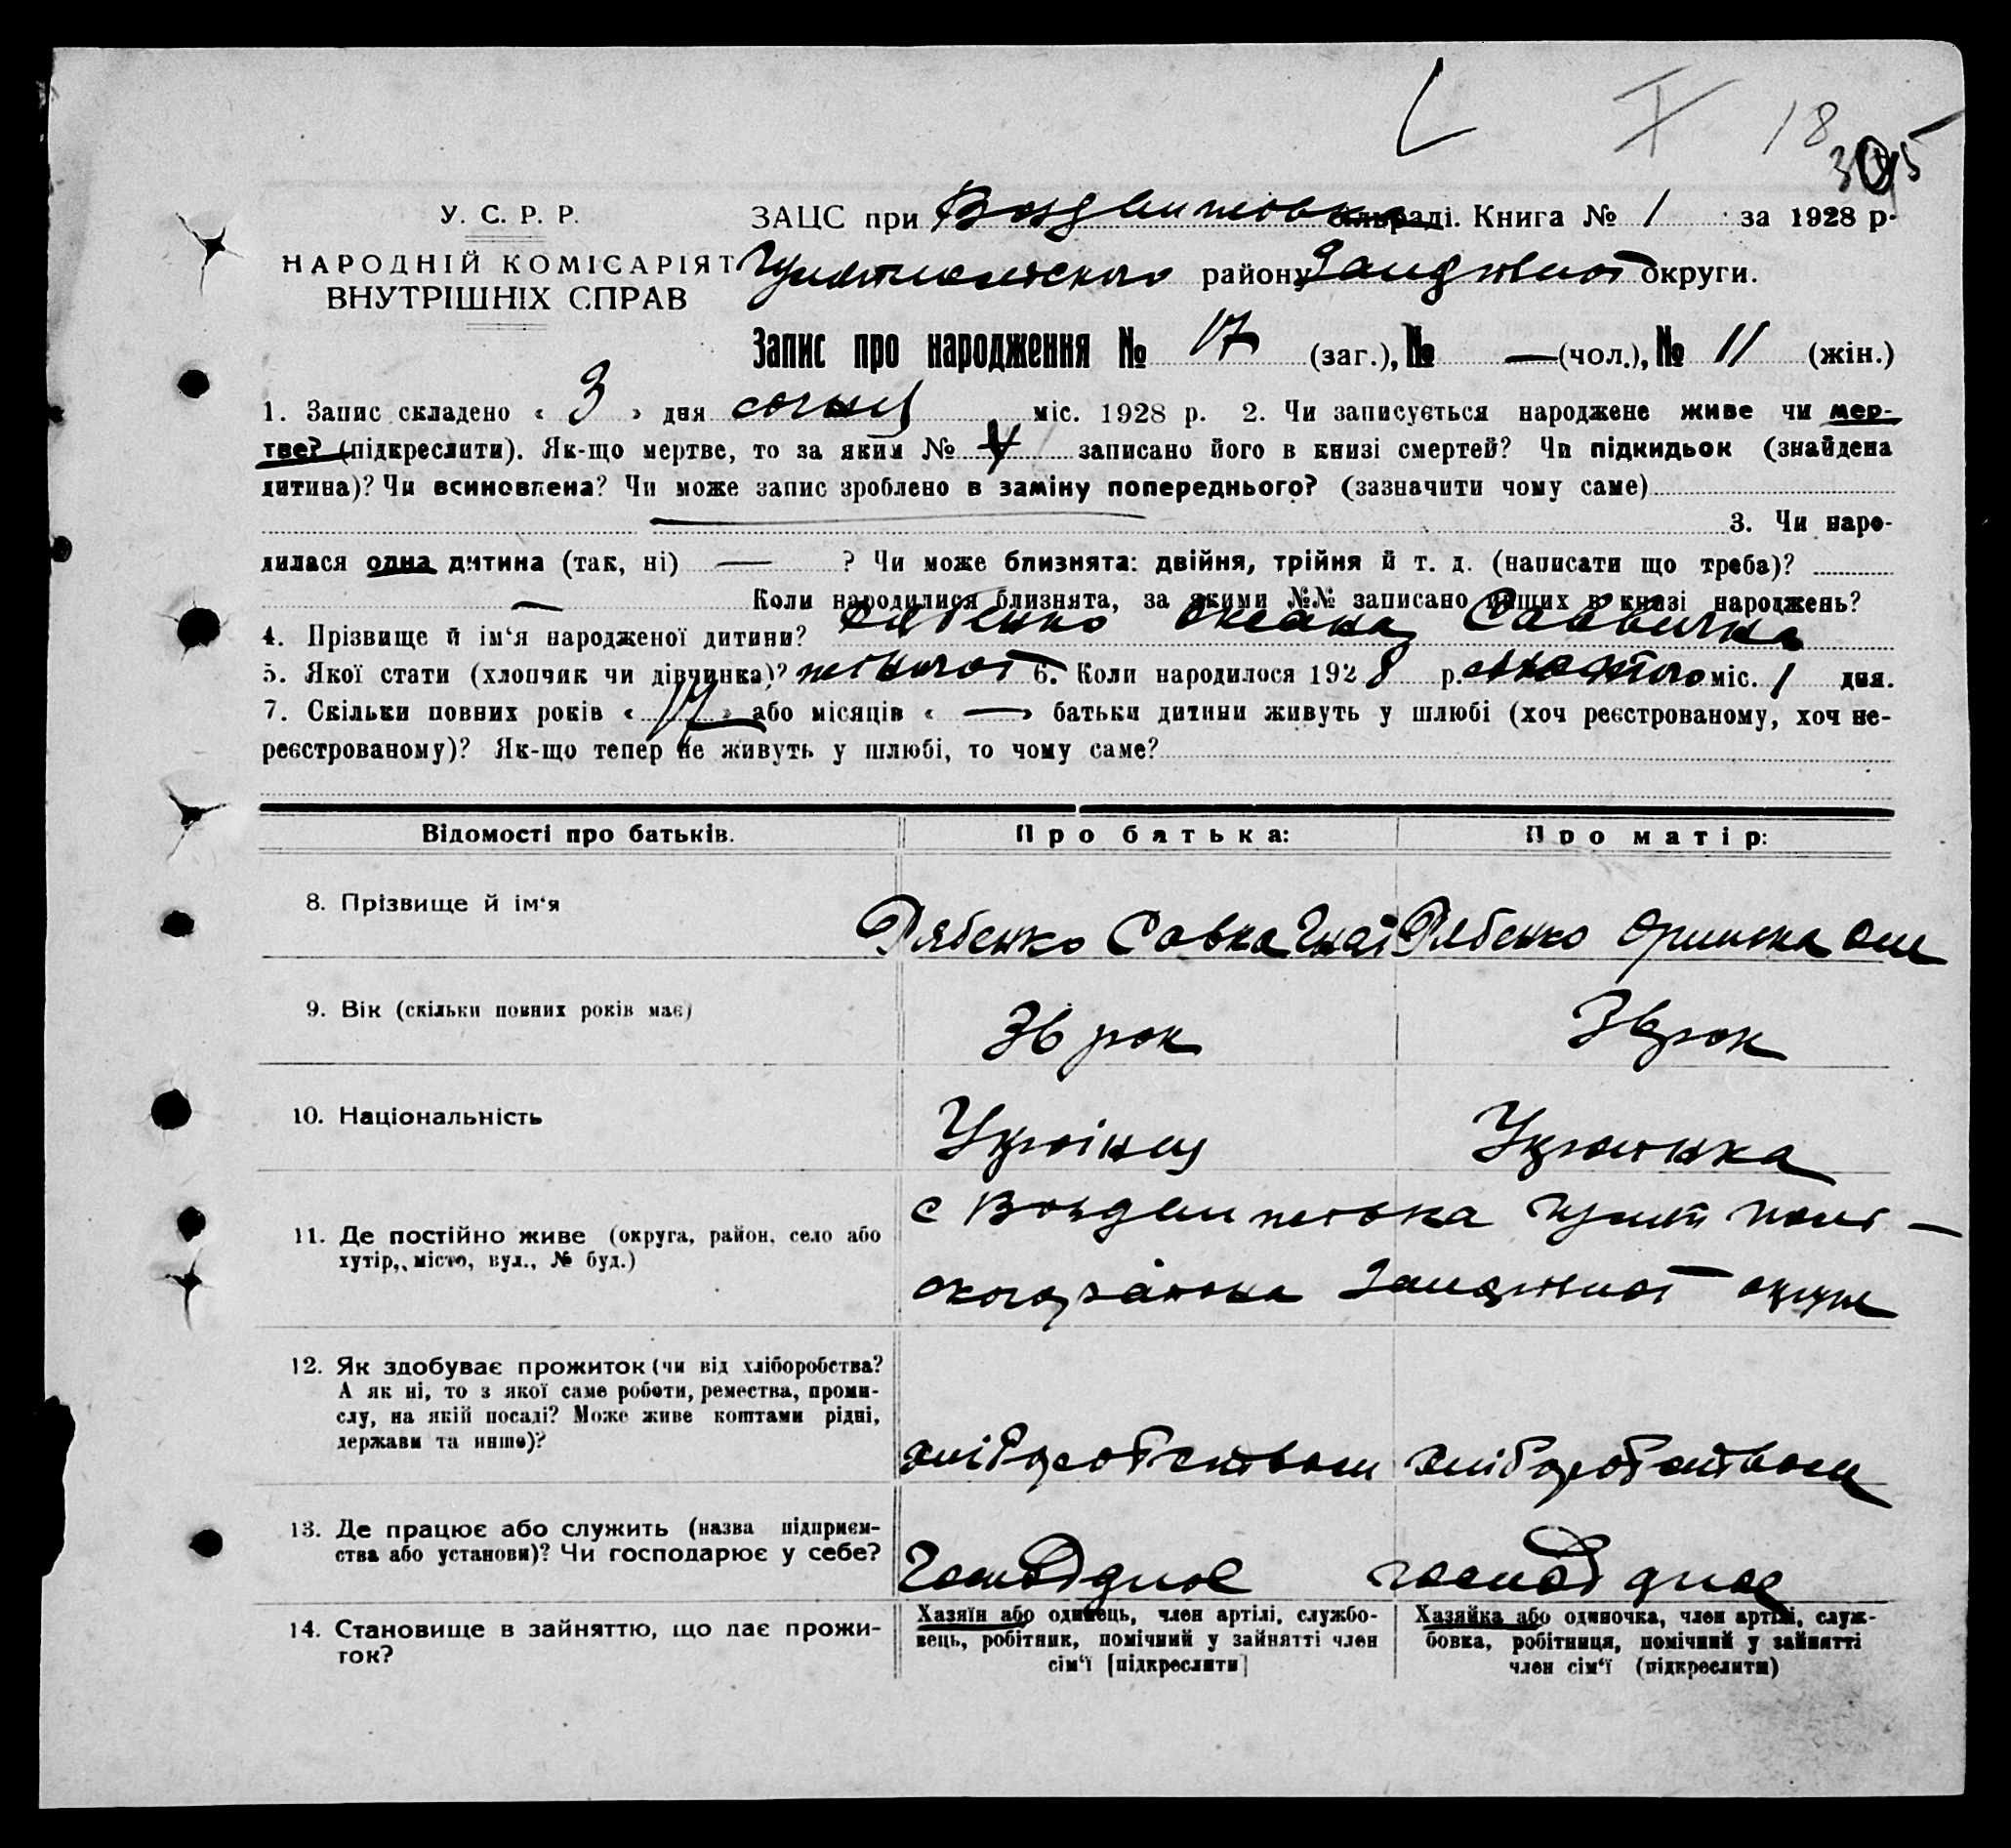 18
305
У. С. Р. Р.
НАРОДНІЙ КОМІСАРІЯТ
ВНУТРІШНІХ СПРАВ
ЗАЦС при Воздвижовка сільраді. Книга № 1 за 1928 р.
району округи.
Запис про народження № 17 (заг.), № — (чол.), № 11 (жін.)
1. Запис складено « 3 » дня міс. 1928 р. 2. Чи записується народжене живе чи мер-
тве? (підкреслити). Як-що мертве, то за яким № записано його в книзі смертей? Чи підкидьок (знайдена
дитина)? Чи всиновлена? Чи може запис зроблено в заміну попереднього? (зазначити чому саме)
3. Чи наро-
дилася одна дитина (так, ні) — ? Чи може близнята: двійня, трійня й т. д. (написати що треба)?
— Коли народилися близнята, за якими №№ записано инших в книзі народжень?
4. Прізвище й ім'я народженої дитини? Рябенко Саввична
5. Якої стати (хлопчик чи дівчинка)? жіночої 6. Коли народилося 1928 р. лютого міс. 1 дня.
7. Скільки повних років « 17 » або місяців « — » батьки дитини живуть у шлюбі (хоч реєстрованому, хоч не-
реєстрованому)? Як-що тепер не живуть у шлюбі, то чому саме?
Відомості про батьків. Про батька: Про матір:
8. Прізвище й ім'я Рябенко Савка Гнат Рябенко Оришка
9. Вік (скільки повних років має) 36 рок 36 рок
10. Національність Українец Українка
11. Де постійно живе (округа, район, село або
хутір, місто, вул., № буд.)
с Воздвижовка
району округи
12. Як здобуває прожиток (чи від хліборобства?
А як ні, то з якої саме роботи, ремества, проми-
слу, на якій посаді? Може живе коштами рідні,
держави та инше)?
хліборобством хліборобством
13. Де працює або служить (назва підприєм-
ства або установи)? Чи господарює у себе?
14. Становище в зайняттю, що дає прожи-
ток?
Хазяїн або одинець, член артілі, службо-
вець, робітник, помічний у зайнятті член
сім'ї [підкреслити]
Хазяйка або одиночка, член артілі, служ-
бовка, робітниця, помічний у зайнятті
член сім'ї (підкреслити)